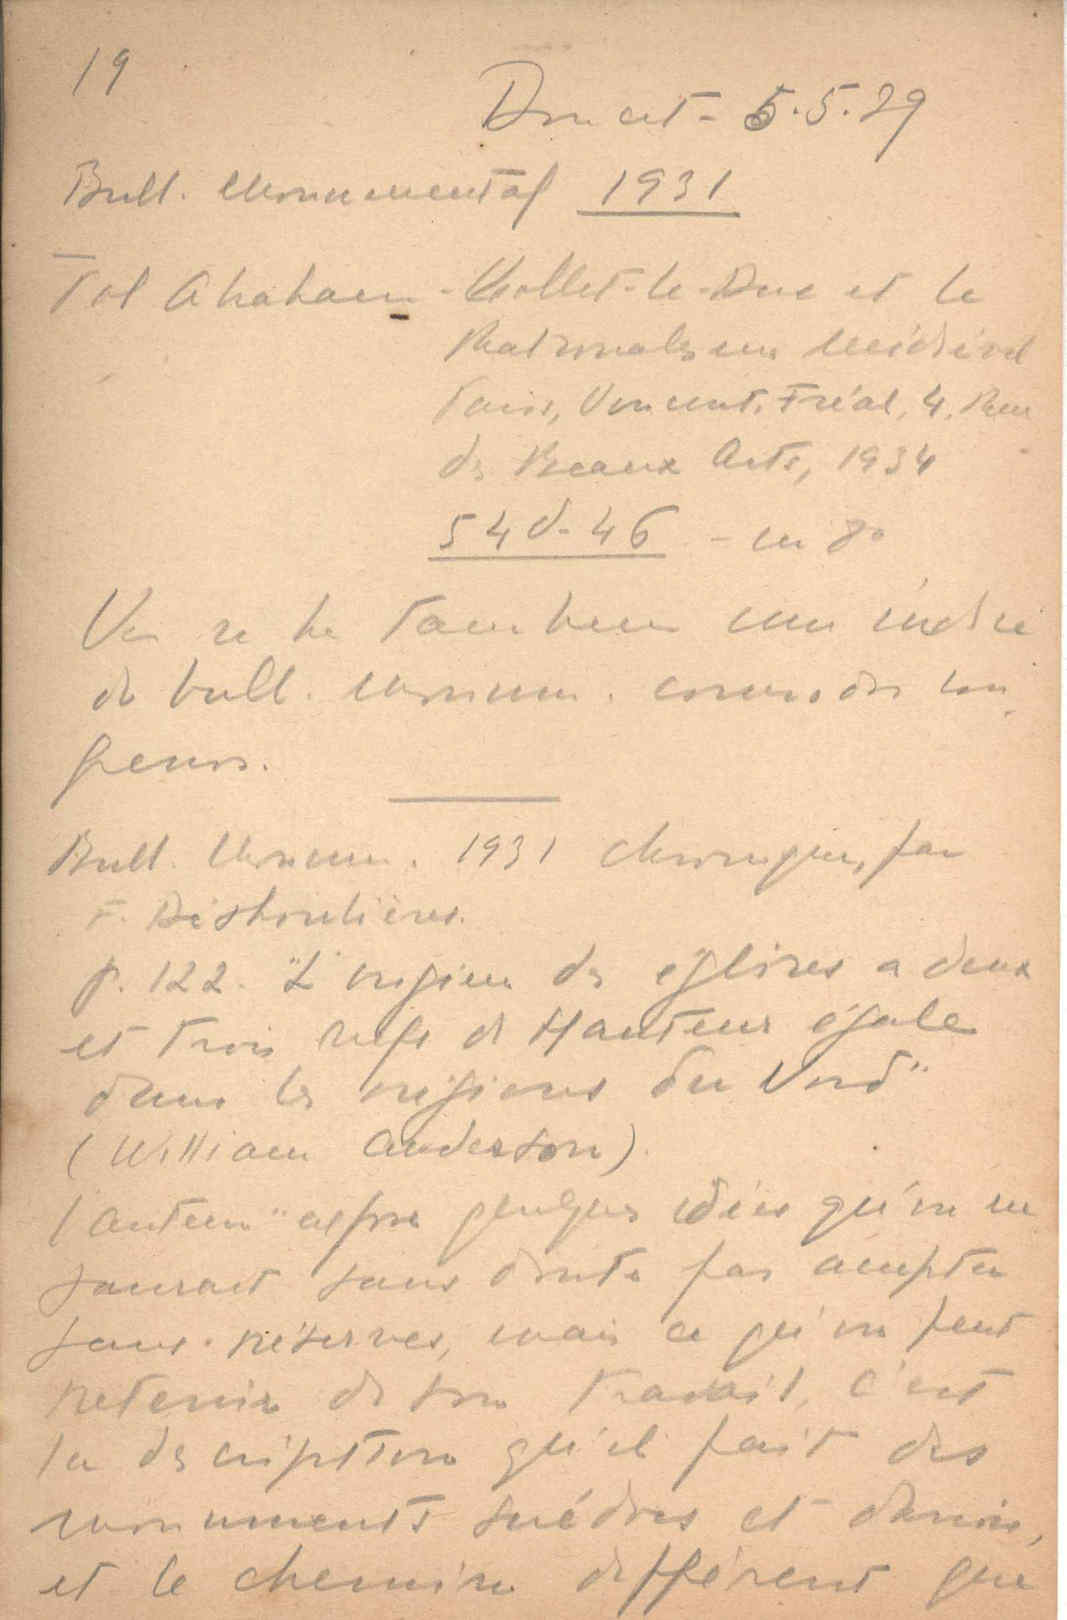 19
Doucet - 5.5.39
Bull. Monumental 1931
Pol Abraham - Viollet-le-Duc et le
Rationalisme médiéval
Paris, Vincent, Fréal, 4, Rue
des Beaux Arts, 1934
54 d. 46 - in 8°
de bull. Monum.
Bull. Monum. 1931 chronique, par
F. Deshoulières.
p. 122. "L'origine des églises a deux
et trois nefs de Hauteur égale
dans les régions du Nord"
(William Anderson).
l'auteur "expose quelques idées qu'on ne
saurait sans doute pas accepter
sans réserves, mais ce qu'on peut
retenir de son travail, c'est
la description qu'il fait des
monuments suédois et danois,
et le chemin différent que